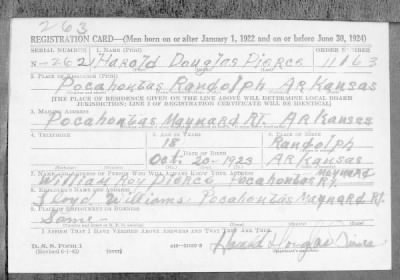 263
REGISTRATION CARD—(Men born on or after January 1, 1922 and on or before June 30, 1924)
SERIAL NUMBER 1. NAME (Print) ORDER NUMBER
N-262 Harold Douglas Pierce 11163
2. PLACE OF RESIDENCE (Print)
Pocahontas Randolph Arkansas
[THE PLACE OF RESIDENCE GIVEN ON THE LINE ABOVE WILL DETERMINE LOCAL BOARD
JURISDICTION; LINE 2 OF REGISTRATION CERTIFICATE WILL BE IDENTICAL]
3. MAILING ADDRESS
Pocahontas Maynard Rt. Arkansas
4. TELEPHONE 5. AGE IN YEARS 6. PLACE OF BIRTH
18 Randolph
DATE OF BIRTH
Oct. 20-1923 Arkansas
7. NAME AND ADDRESS OF PERSON WHO WILL ALWAYS KNOW YOUR ADDRESS
William Roy Pierce Pocahontas Maynard Rt.
8. EMPLOYER'S NAME AND ADDRESS
Floyd Williams Pocahontas Maynard Rt.
9. PLACE OF EMPLOYMENT OR BUSINESS
Same-
I AFFIRM THAT I HAVE VERIFIED ABOVE ANSWERS AND THAT THEY ARE TRUE.
D. S. S. FORM 1
(Revised 6-1-42)
Harold Douglas Pierce